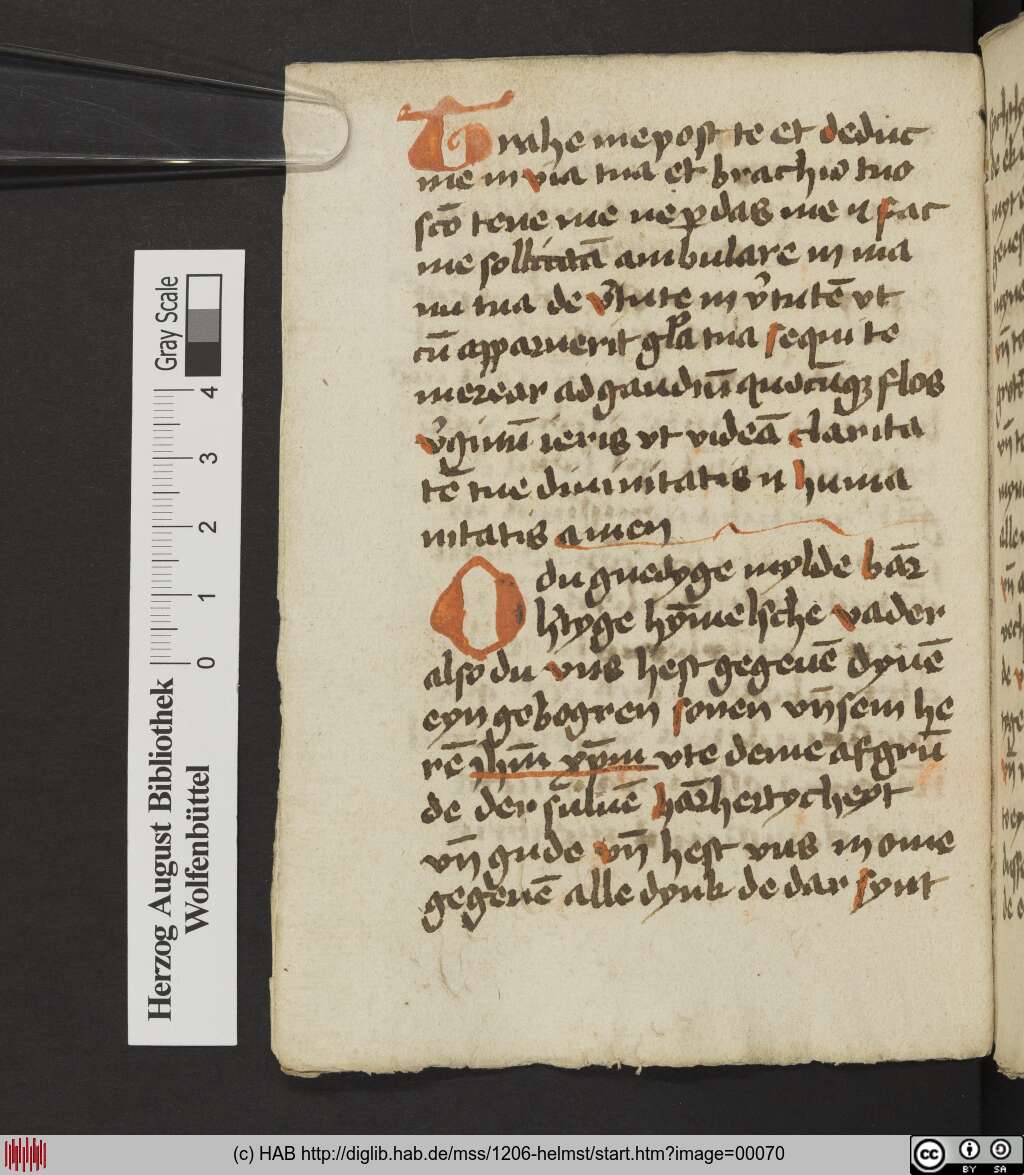 Trahe me post te et deduc
me in via tua et brachio tuo
sc̄o tene me ne ꝑdas me ⁊ fac
me sollicitā ambulare in uia
nu tua de v̓tute in v̓tutē vt
cū apparuerit gl̄a tua sequi te
merear ad gaudiū quocūqꝫ flos
v̓ginū ieris vt videā clarita
tē tue diuinitatis ⁊ huma
nitatis amen
O du gnedyge mylde bār
h̓tyge hȳmelsche vader
also du vns hest gegeuē dynē
eyn gebogren sonen vn̄sem he
rē ih̄m xp̄m vte deme afgrū
de der sūluē bārhertycheyt
vn̄ gude vn̄ hest vns in ome
gegeuē alle dynk de dar synt
Gray Scale
4
3
2
1
0
Herzog August Bibliothek
Wolfenbüttel
(c) HAB http://diglib.hab.de/mss/1206-helmst/start.htm?image=00070
cc BY SA